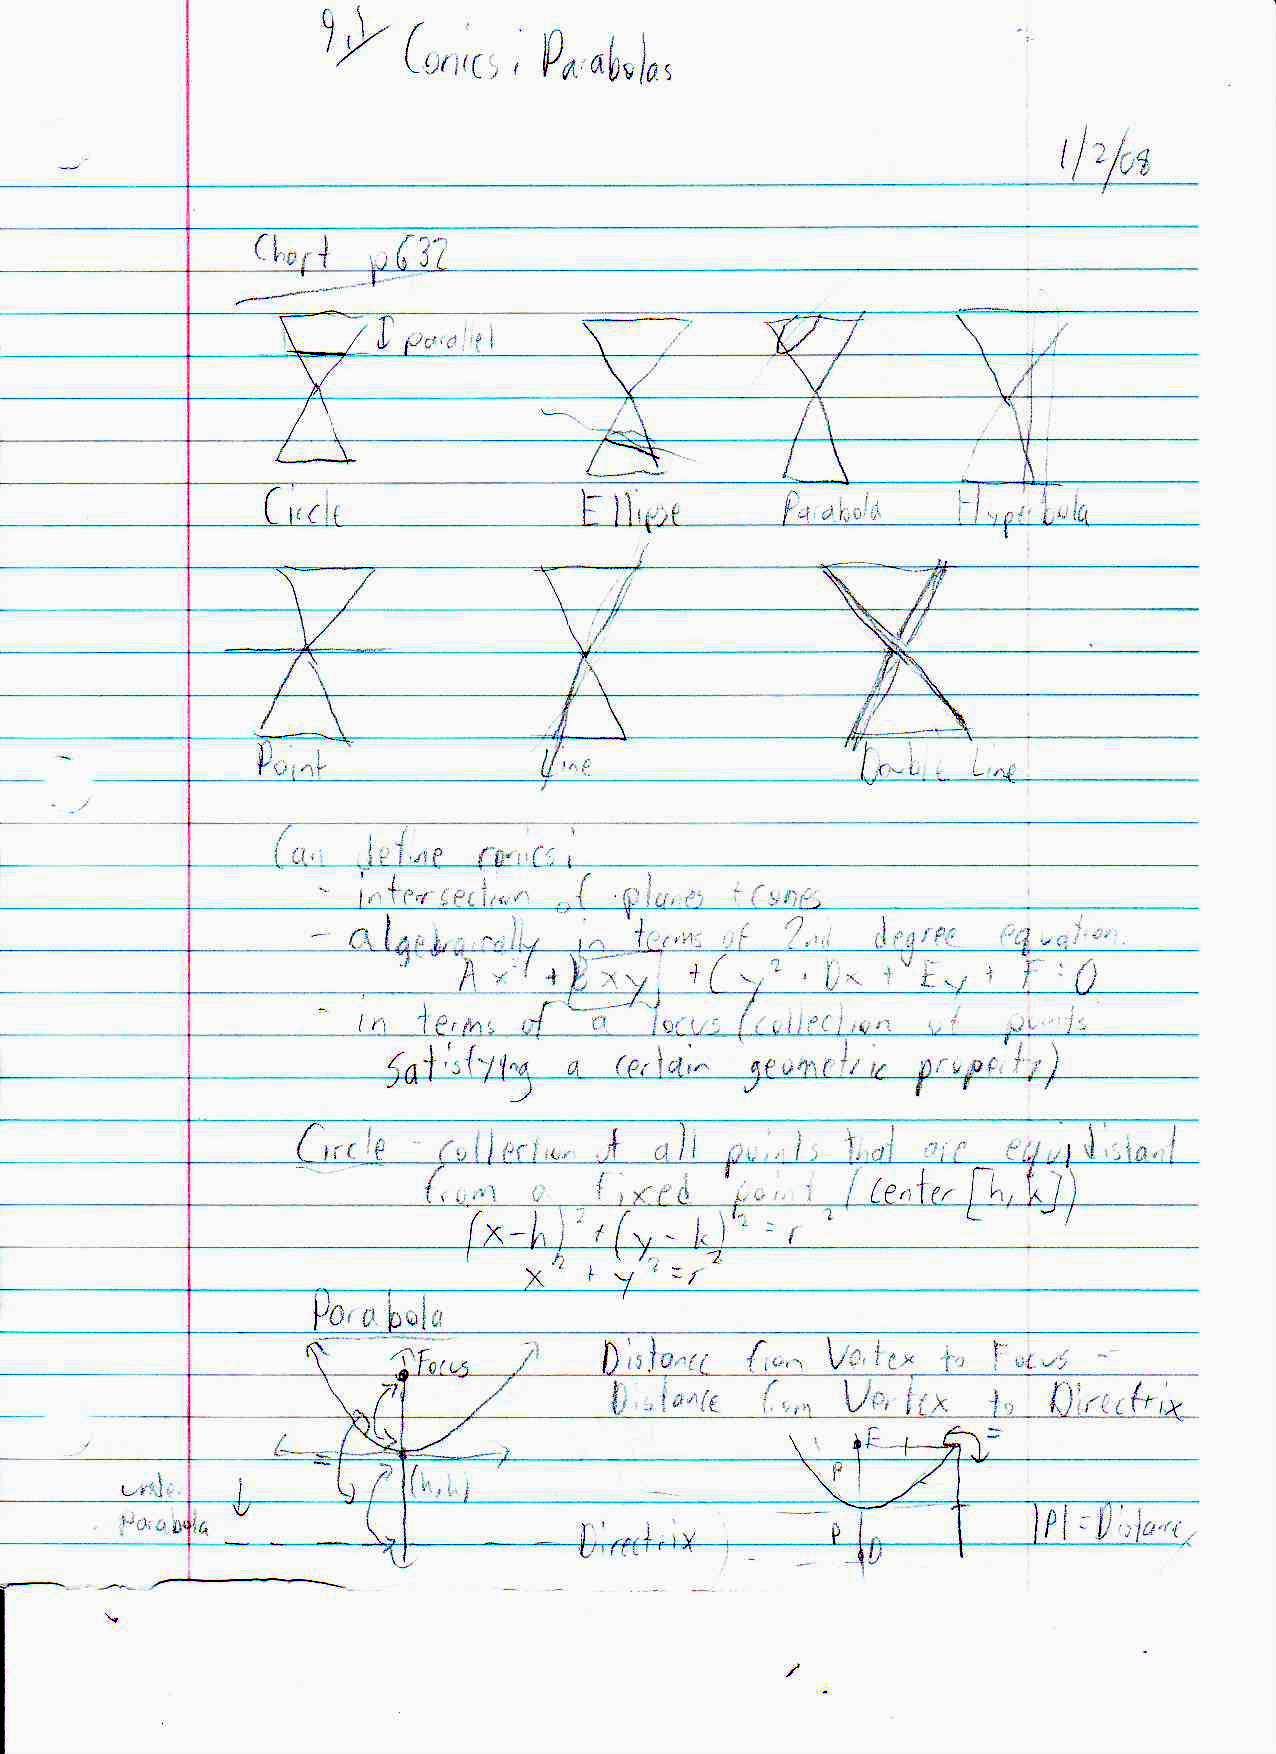 9.1 Conics: Parabolas
1/2/08
Chart p632
parallel
Circle Ellipse Parabola Hyperbola
Point Line Double Line
Can define conics:
- intersection of planes + cones
- algebraically in terms of 2nd degree equation.
Ax² + Bxy + Cy² + Dx + Ey + F = 0
- in terms of a locus (collection of points
satisfying a certain geometric property)
Circle - collection of all points that are equidistant
from a fixed point (center [h, k])
(x-h)² + (y-k)² = r²
x² + y² = r²
Parabola
Focus Distance from Vertex to Focus =
Distance from Vertex to Directrix
= F =
P
(h,k)
under
Parabola
Directrix P D |P| = Distance